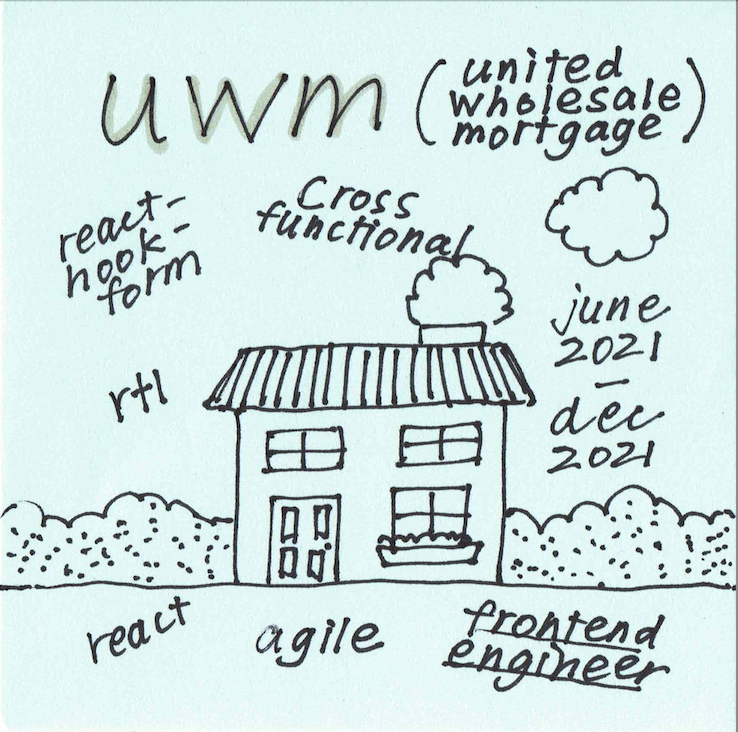 uwm
(united
wholesale
mortgage)
react-
hook-
form
Cross
functional
june
2021
-
dec
2021
rtl
react
agile
frontend
engineer